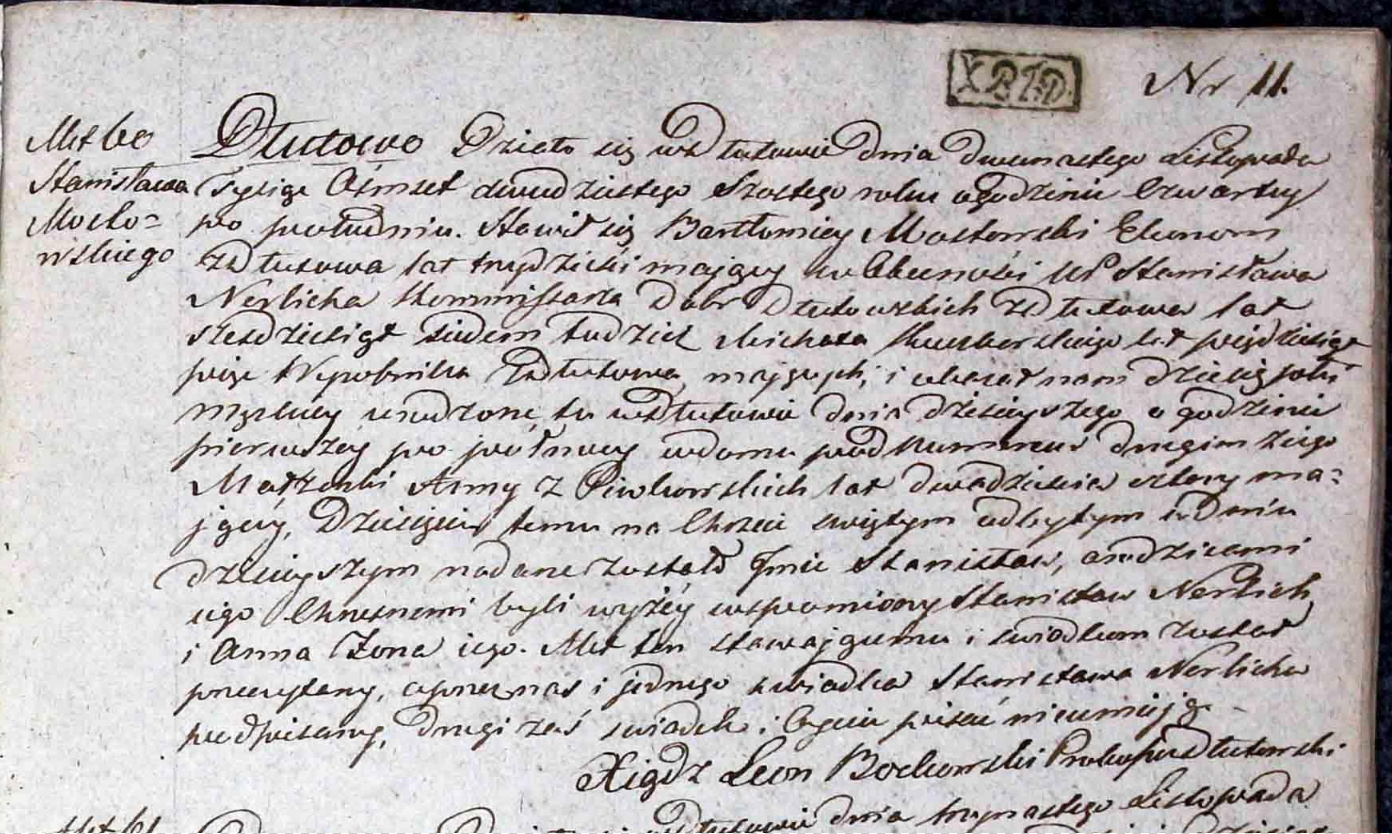 XBTD
Nr 11.
Akt ko
Stanisława
Mosto=
wskiego
Dłutowo Działo się w Dłutowie dnia dwunastego Listopada
Tysiąc Ośmset dwudziestego Szóstego roku o godzinie Czwartey
po południu. Stawił się Bartłomiey Mostowski Ekonom
z Dłutowa lat trzydzieści maiący w Obecności Stanisława
Nerlicha Kommissarza Dobr Dłutowskich z Dłutowa lat
sześdziesiąt siedem tudzież Michała lat pięćdziesiąt
pięć Wyrobnika z Dłutowa maiących, i okazał nam dziecię płci
męzkiey urodzone tu w Dłutowie dnia dzisieyszego o godzinie
pierwszey po pół nocy w domu pod Numerem drugim z iego
Małżonki Anny z Piwkowskich lat dwadzieścia cztery ma=
jącey. Dziecięciu temu na Chrzcie świętym odbytym w dniu
dzisieyszym nadane zostało Imie Stanisław, a rodzicami
iego Chrzesnemi byli wyżey wspomniony Stanisław Nerlich
i Anna Żona iego. Akt ten stawaiącemu i świadkom został
przeczytany, a przez nas i jednego świadka Stanisława Nerlicha
podpisany, drugi zaś świadek i Oyciec pisać nieumieją.
Xiądz Leon Bochowski Proboszcz Dłutowski
w Dłutowie dnia trzynastego Listopada